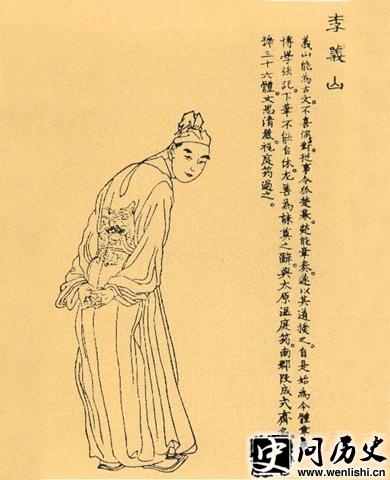 李義山
義山能為古文。不喜偶對。從事令狐楚幕。楚能章奏。遂以其道授之。自是始為今體
博學强記。下筆不能自休。尤善為誄奠之辭。與太原溫庭筠南郡段成式齊名
號三十六體。文思清麗。視庭筠過之。
史问历史
www.wenlishi.cn